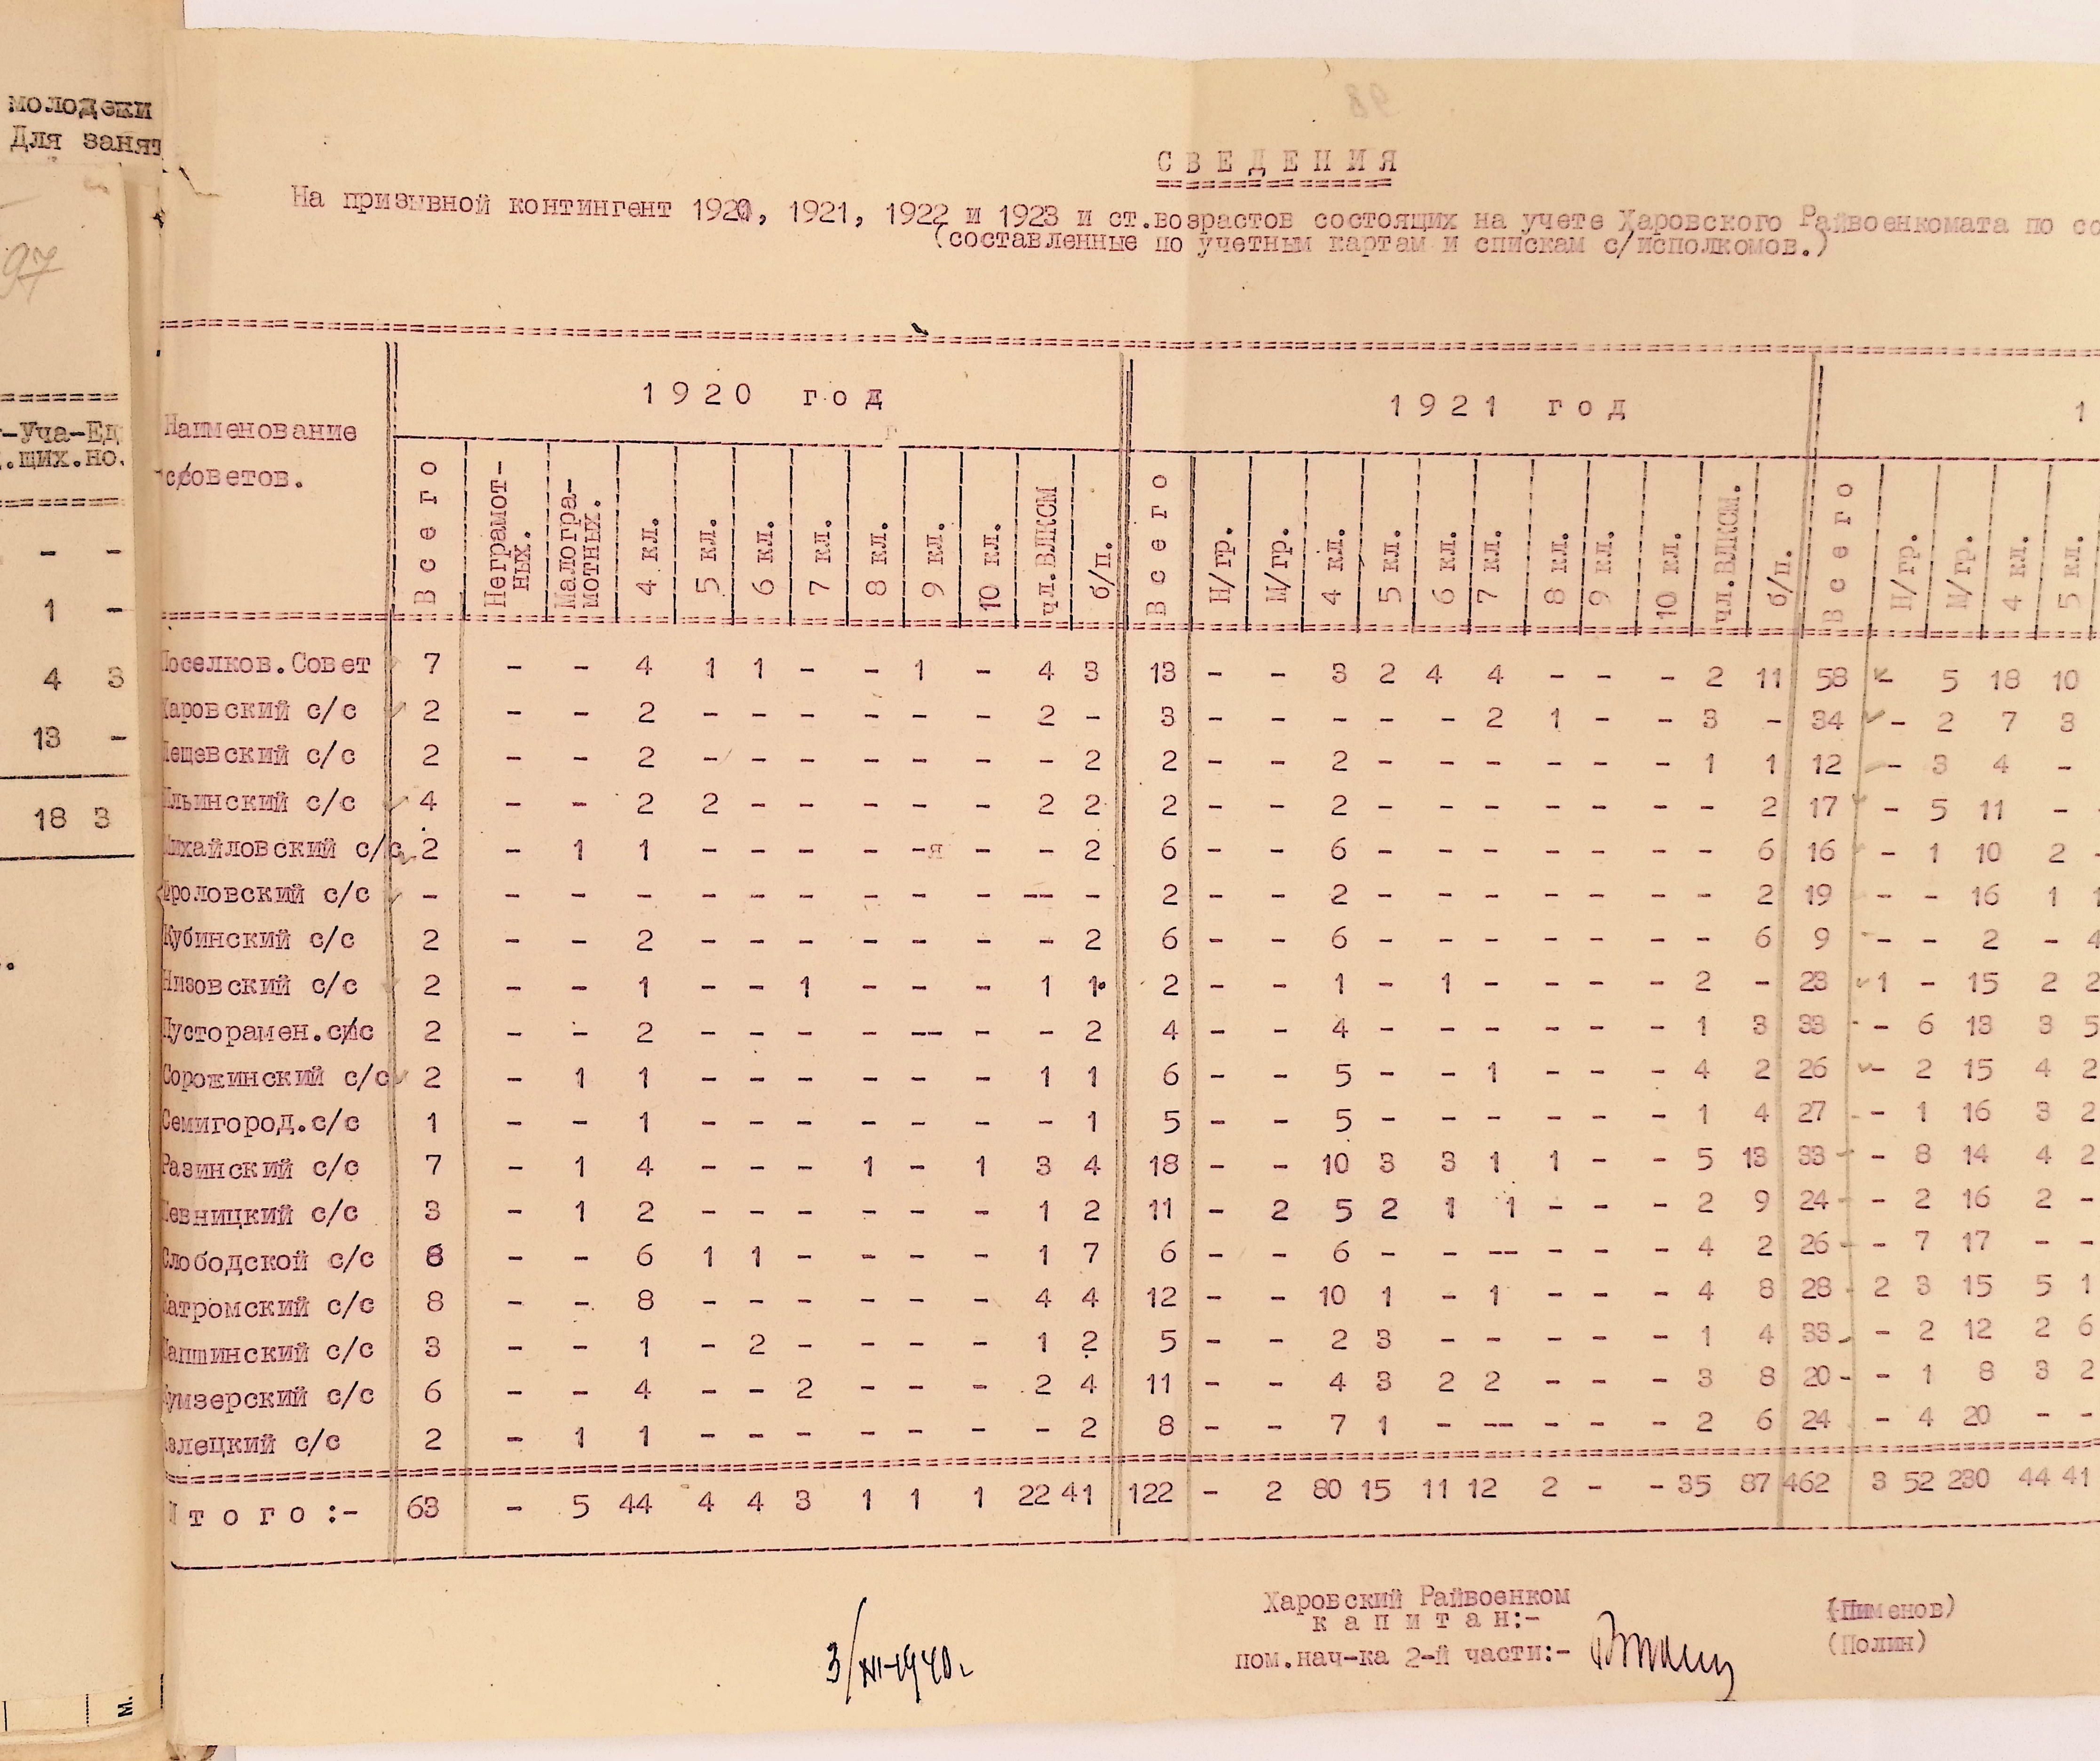 молодежи
Для занят
97
-Уча-Ед
.щих.но.
- -
1 -
4 3
13 -
18 3
м.
98
С В Е Д Е Н И Я
На призывной контингент 1920, 1921, 1922 и 1923 и ст.возрастов состоящих на учете Харовского Райвоенкомата по со
(составленные по учетным картам и спискам с/исполкомов.)
Наименование
с/советов.
1920 год
1921 год
1
Всего Неграмот-ных. Малогра-мотных. 4 кл. 5 кл. 6 кл. 7 кл. 8 кл. 9 кл. 10 кл. чл.ВЛКСМ б/п. Всего Н/гр. М/гр. 4 кл. 5 кл. 6 кл. 7 кл. 8 кл. 9 кл. 10 кл. чл.ВЛКСМ. б/п. Всего Н/гр. М/гр. 4 кл. 5 кл.
Поселков.Совет 7 - - 4 1 1 - - 1 - 4 3 13 - - 3 2 4 4 - - - 2 11 58 - 5 18 10
Харовский с/с 2 - - 2 - - - - - - 2 - 3 - - - - - 2 1 - - 3 - 34 - 2 7 3
с/с 2 - - 2 - - - - - - - 2 2 - - 2 - - - - - - 1 1 12 - 3 4 -
Ильинский с/с 4 - - 2 2 - - - - - 2 2 2 - - 2 - - - - - - - 2 17 - 5 11 -
Михайловский с/с 2 - 1 1 - - - - - - - 2 6 - - 6 - - - - - - - 6 16 - 1 10 2 -
Фроловский с/с - - - - - - - - - - -- - 2 - - 2 - - - - - - - 2 19 - - 16 1 1
Кубинский с/с 2 - - 2 - - - - - - - 2 6 - - 6 - - - - - - - 6 9 - - 2 - 4
Низовский с/с 2 - - 1 - - 1 - - - 1 1 2 - - 1 - 1 - - - - 2 - 23 1 - 15 2 2
Пусторамен.с/с 2 - - 2 - - - - -- - - 2 4 - - 4 - - - - - - 1 3 33 - 6 13 3 5
Сорожинский с/с 2 - 1 1 - - - - - - 1 1 6 - - 5 - - 1 - - - 4 2 26 - 2 15 4 2
Семигород.с/с 1 - - 1 - - - - - - - 1 5 - - 5 - - - - - - 1 4 27 - 1 16 3 2
Разинский с/с 7 - 1 4 - - - 1 - 1 3 4 18 - - 10 3 3 1 1 - - 5 13 33 - 8 14 4 2
Шевницкий с/с 3 - 1 2 - - - - - - 1 2 11 - 2 5 2 1 1 - - - 2 9 24 - 2 16 2 -
Слободской с/с 8 - - 6 1 1 - - - - 1 7 6 - - 6 - - -- - - - 4 2 26 - 7 17 - -
Катромский с/с 8 - - 8 - - - - - - 4 4 12 - - 10 1 - 1 - - - 4 8 28 2 3 15 5 1
Шапшинский с/с 3 - - 1 - 2 - - - - 1 2 5 - - 2 3 - - - - - 1 4 33 - 2 12 2 6
Кумзерский с/с 6 - - 4 - - 2 - - - 2 4 11 - - 4 3 2 2 - - - 3 8 20 - 1 8 3 2
Азлецкий с/с 2 - 1 1 - - - - - - - 2 8 - - 7 1 - -- - - - 2 6 24 - 4 20 - -
Итого:- 63 - 5 44 4 4 3 1 1 1 22 41 122 - 2 80 15 11 12 2 - - 35 87 462 3 52 230 44 41
Харовский Райвоенком
капитан:- (Пименов)
пом.нач-ка 2-й части:- (Полин)
3/XII-1940г.